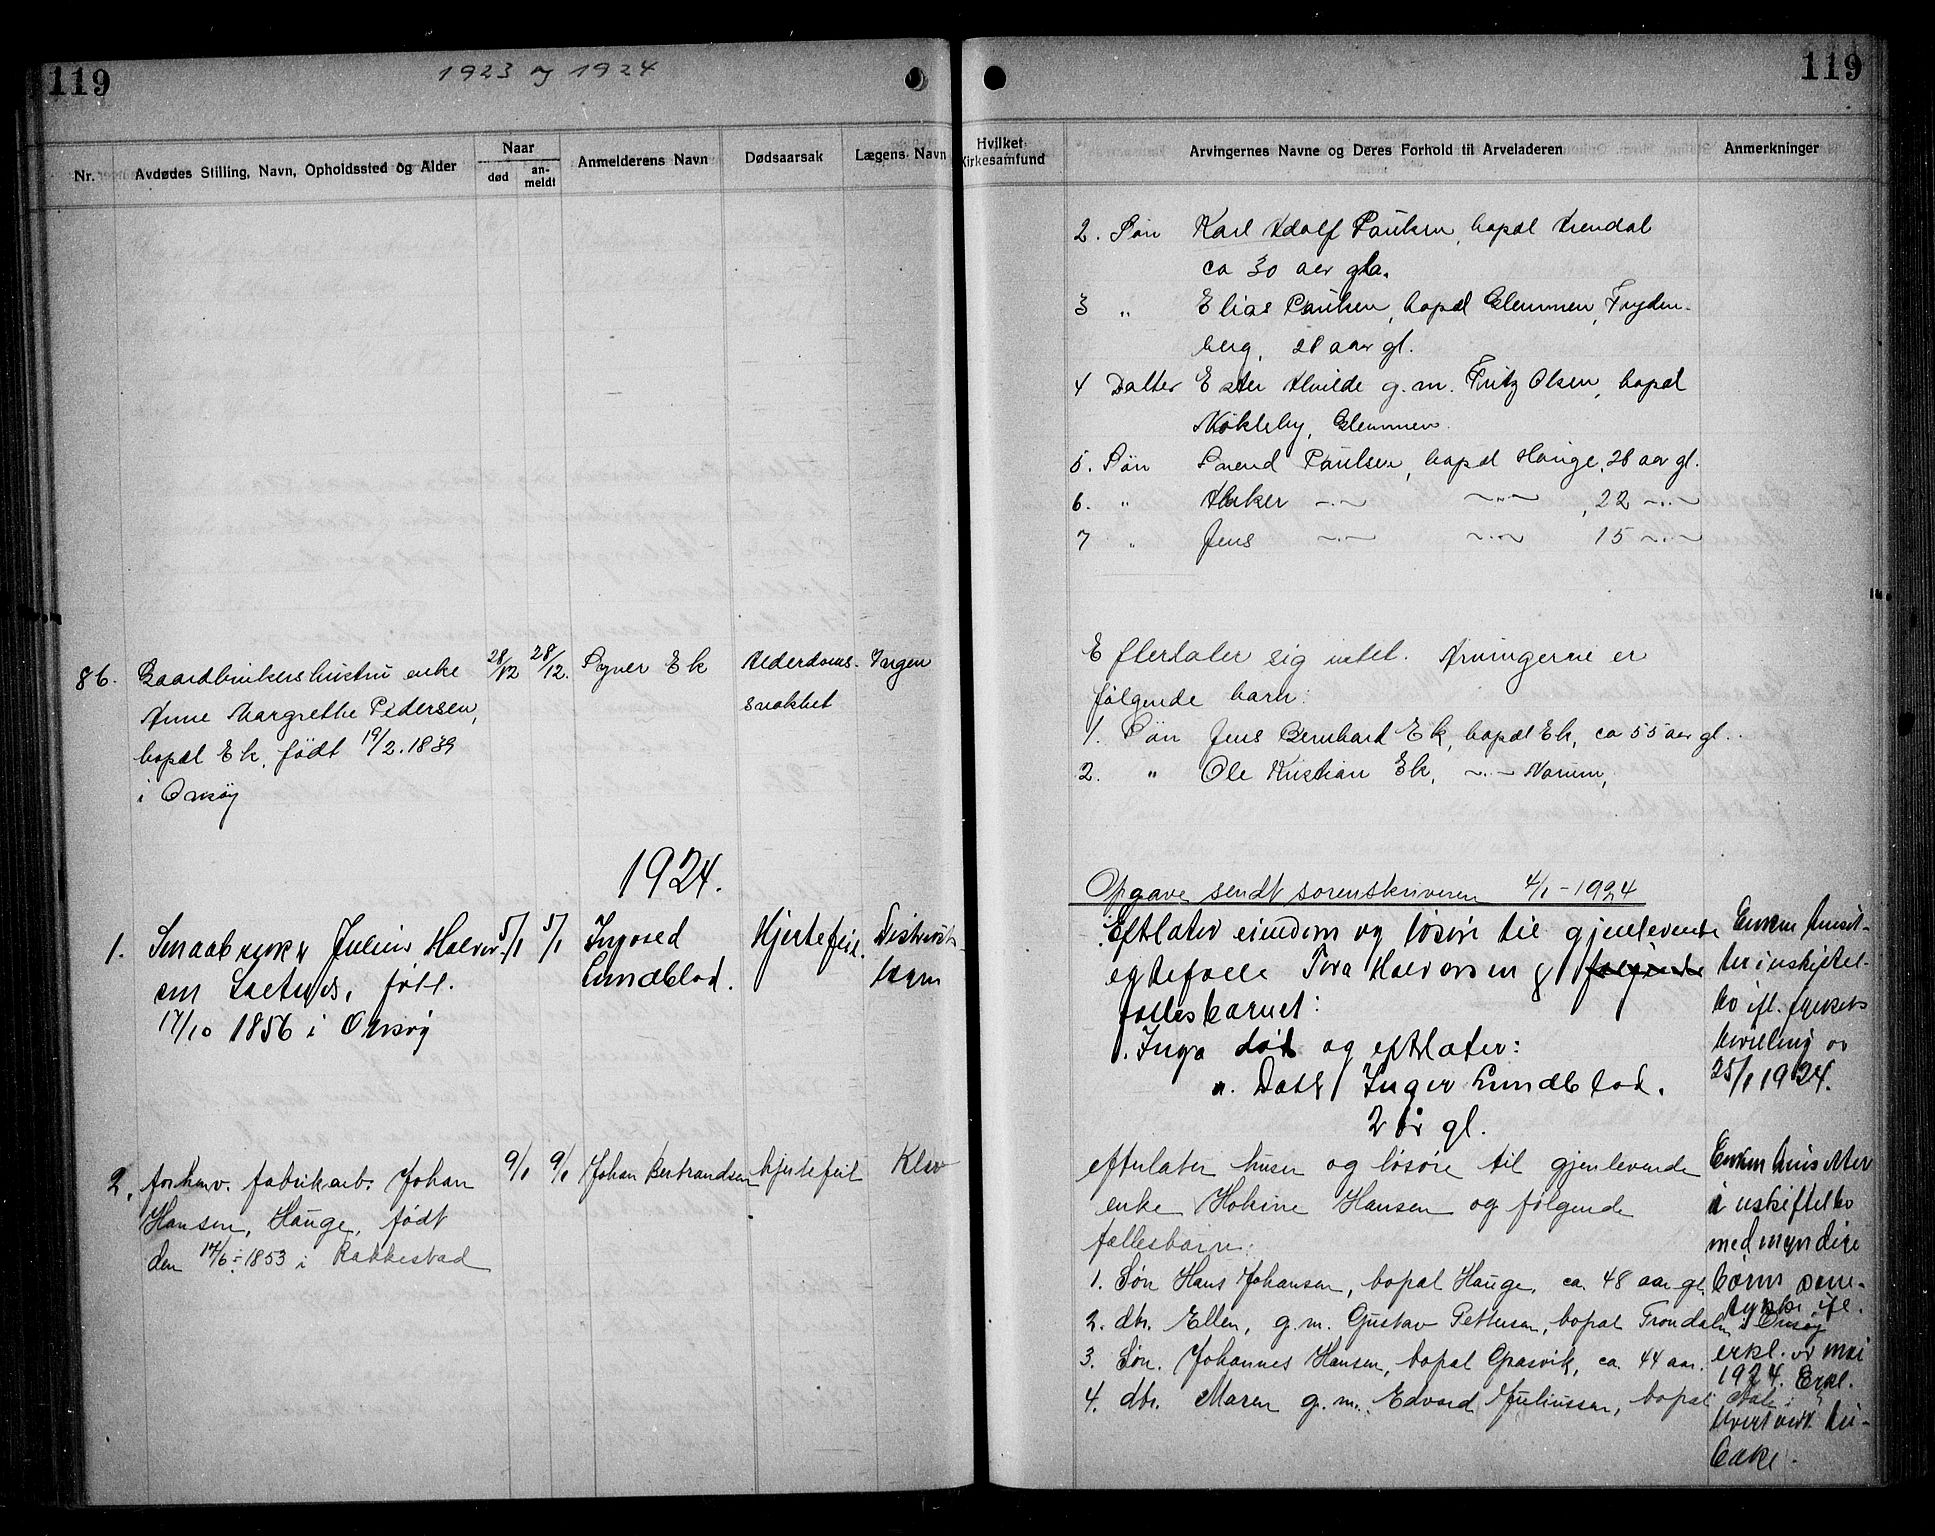 119
1923 og 1924
Nr.
Avdødes Stilling, Navn, Opholdssted og Alder
Naar
død
an-
meldt
Anmelderens Navn
Dødsaarsak
Lægens Navn
86.
Gaardbrukers hustru enke
Anne Margrethe Pedersen,
bopæl Ek, født 19/2. 1839
i Onsøy
28/12
28/12.
Syver Ek
Alderdoms-
svakhet
Ingen
1924.
1.
Smaabruker Julius Halvor-
sen født.
17/10 1856 i Onsøy
5/1
5/1
Ingvald
Lundblad.
Hjertefeil.
Distrikts-
2.
forhenv. fabrikarb. Johan
Hansen, Hauge, født
den 17/6 - 1853 i Rakkestad
9/1
9/1
Johan Bertrandsen
hjertefeil
Klev
119
Hvilket
Kirkesamfund
Arvingernes Navne og Deres Forhold til Arveladeren
Anmerkninger
2. Søn Karl Adolf Paulsen, bopæl Arendal
ca 30 aar gla.
3 " Elias Paulsen, bopæl Glemmen, Fryden-
berg, 28 aar gl.
4 Datter Ester Alvilde g. m. Fritz Olsen, bopæl
Nøkleby, Glemmen.
5. Søn Svend Paulsen, bopæl Hauge, 28 aar gl.
6. " ~"~ ~"~, 22 ~"~
7 " Jens ~"~ ~"~ 15 ~"~
Efterlater sig intet. Arvingerne er
følgende barn:
1. Søn Jens Bernhard Ek, bopæl Ek, ca 55 aar gl.
2. " Ole Kristian Ek, ~"~ Norum,
Opgave sendt sorenskriveren 4/1 - 1924
Eftlater eiendom og løsøre til gjenlevende
egtefælle Tora Halvorsen & følgende
fællesbarnet:
1. Inga død og eftlater:
a. Datter Inger Lundblad.
2 år gl.
efterlater huser og løsøre til gjenlevende
enke Hokine Hansen og følgende
fællesbarn:
1. Søn Hans Johansen, bopæl Hauge, ca. 48 aar gl.
2. dtr. Ellen, g. m. Gustav Pettersen, bopæl Trondalen i Onsøy
3. Søn. Johannes Hansen, bopæl Græsvik, ca. 44 aar.
4. dtr. Maren g. m. Edvard Juliussen, bopæl Ale i "
Enken hensit-
ter i uskiftet
bo ifl. skifterets
bevilling av
25/1 1924.
Enken hensitter
i uskiftet bo
med myndige
børns sam-
tykke ifl.
erkl. av mai
1924. Erkl.
levert til-
bake.